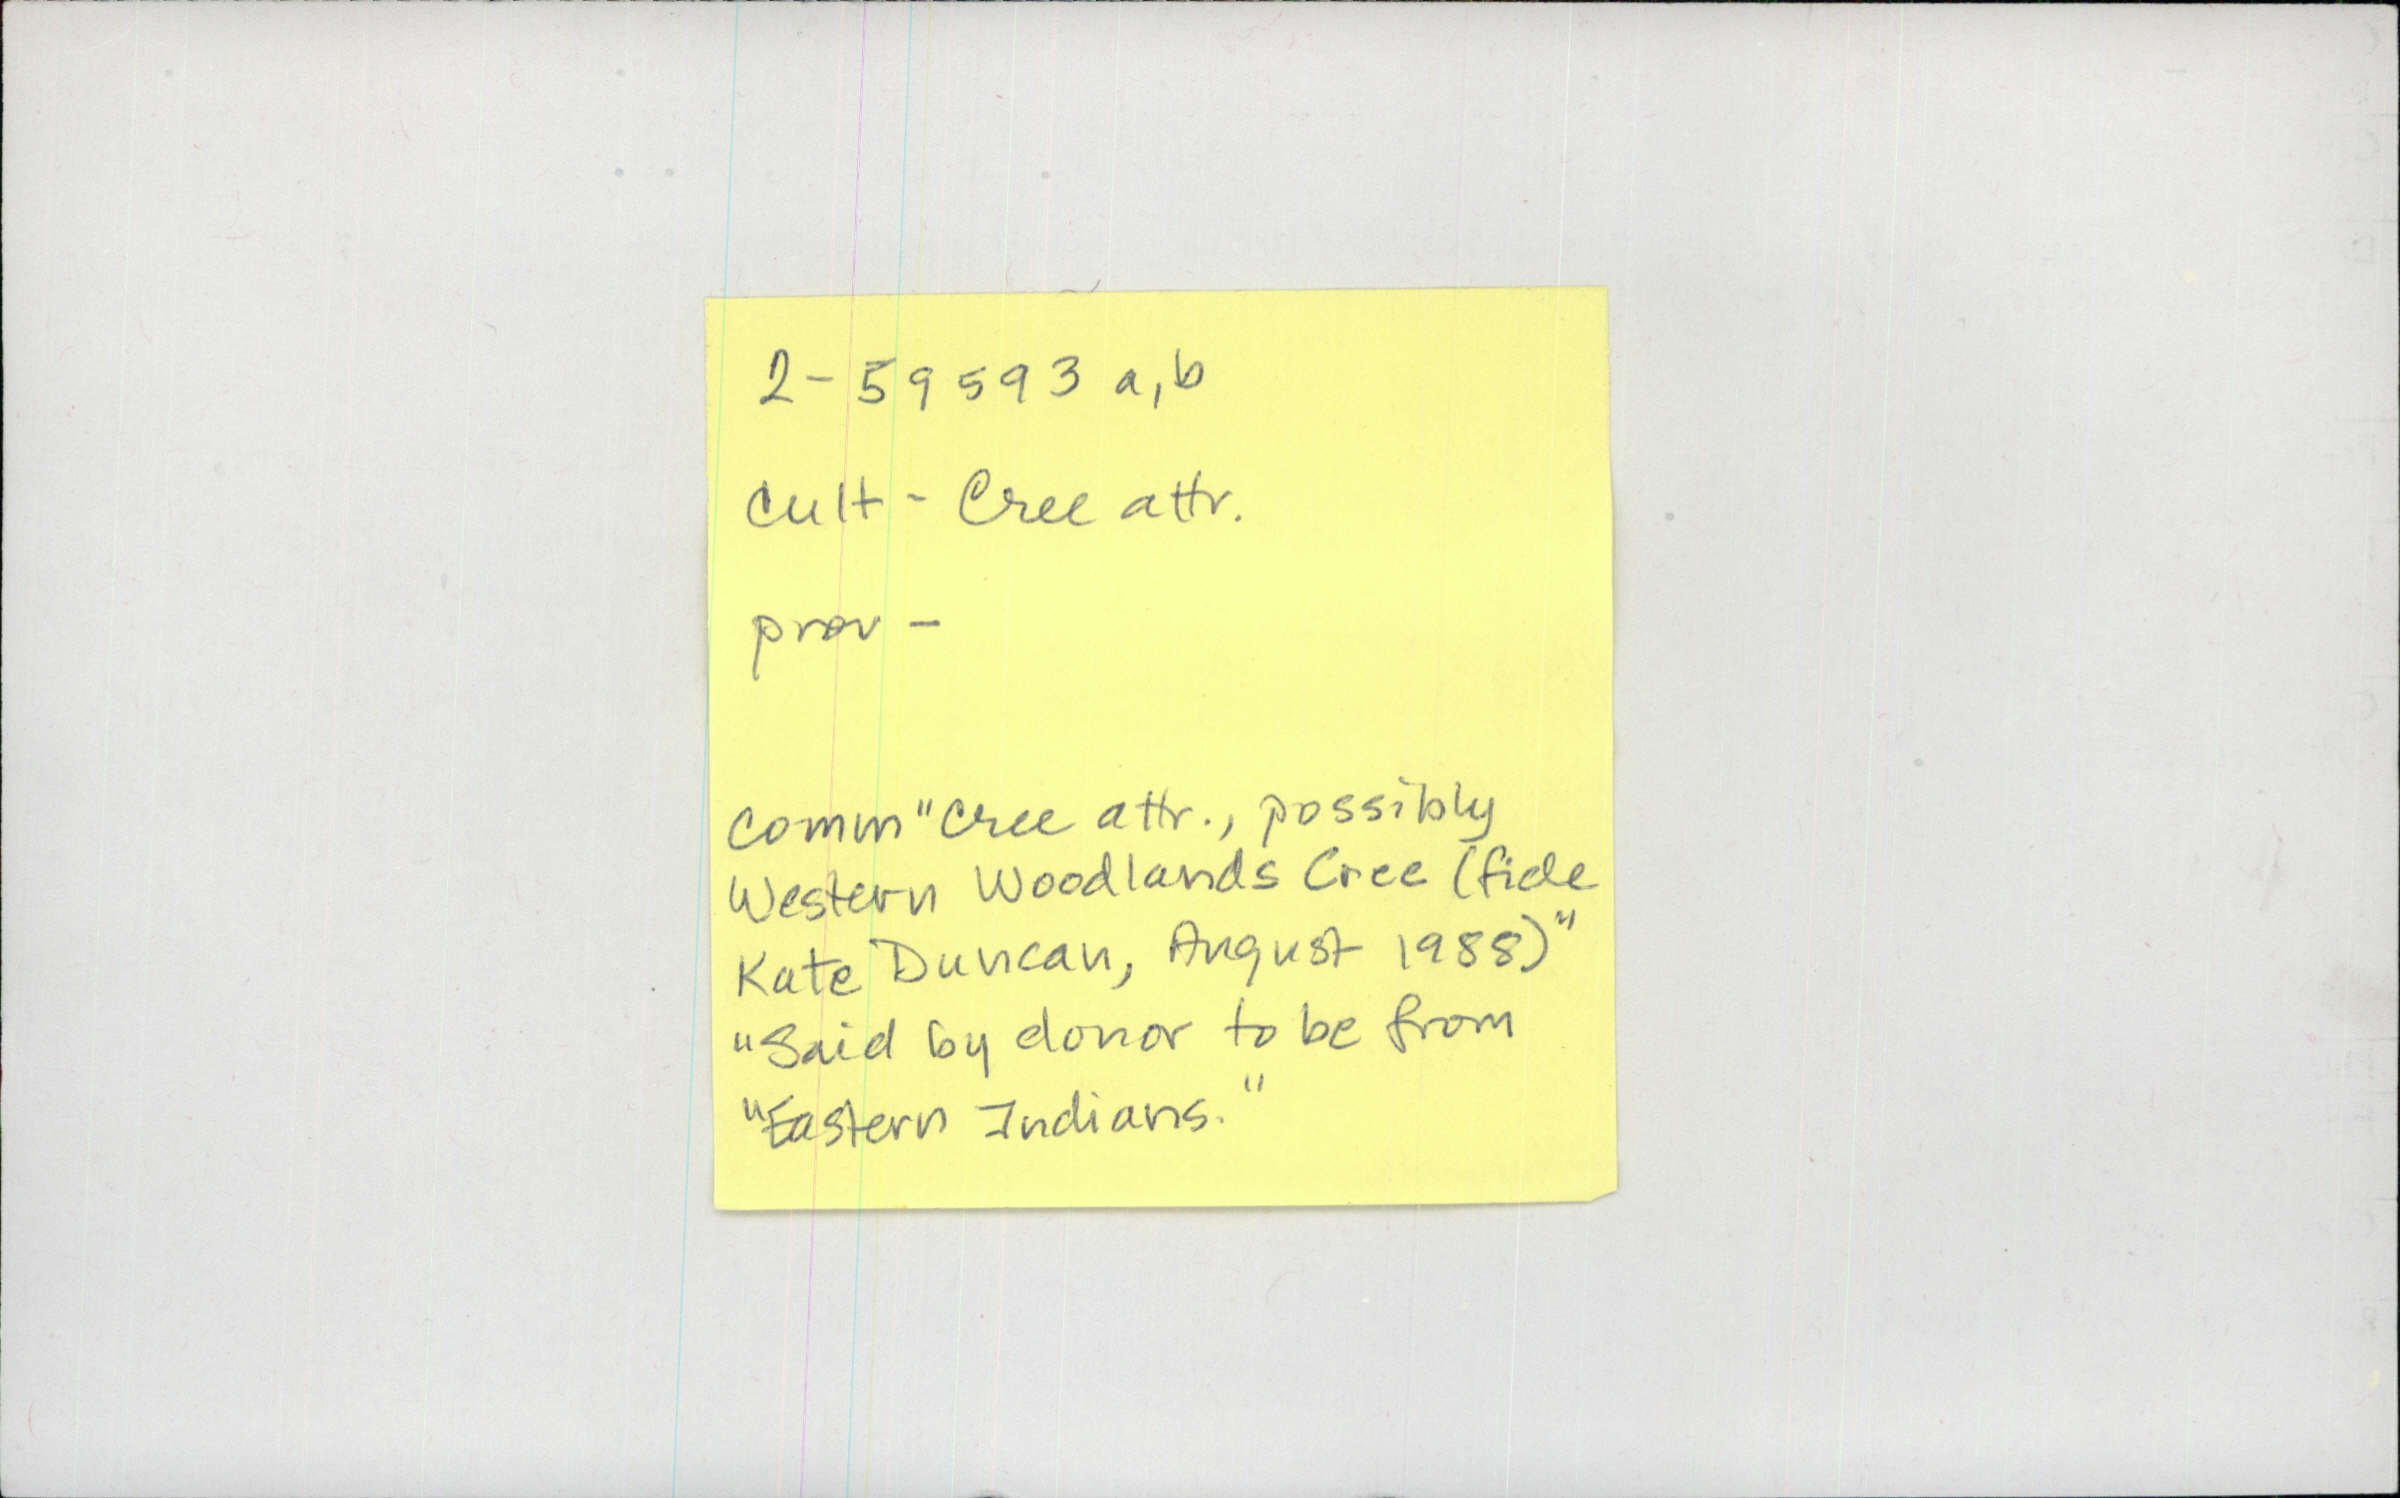 2-59593 a,b
Cult - Cree attr.
prov -
Comm "Cree attr., possibly
Western Woodlands Cree (fide
Kate Duncan, August 1988)"
"Said by donor to be from
"Eastern Indians."